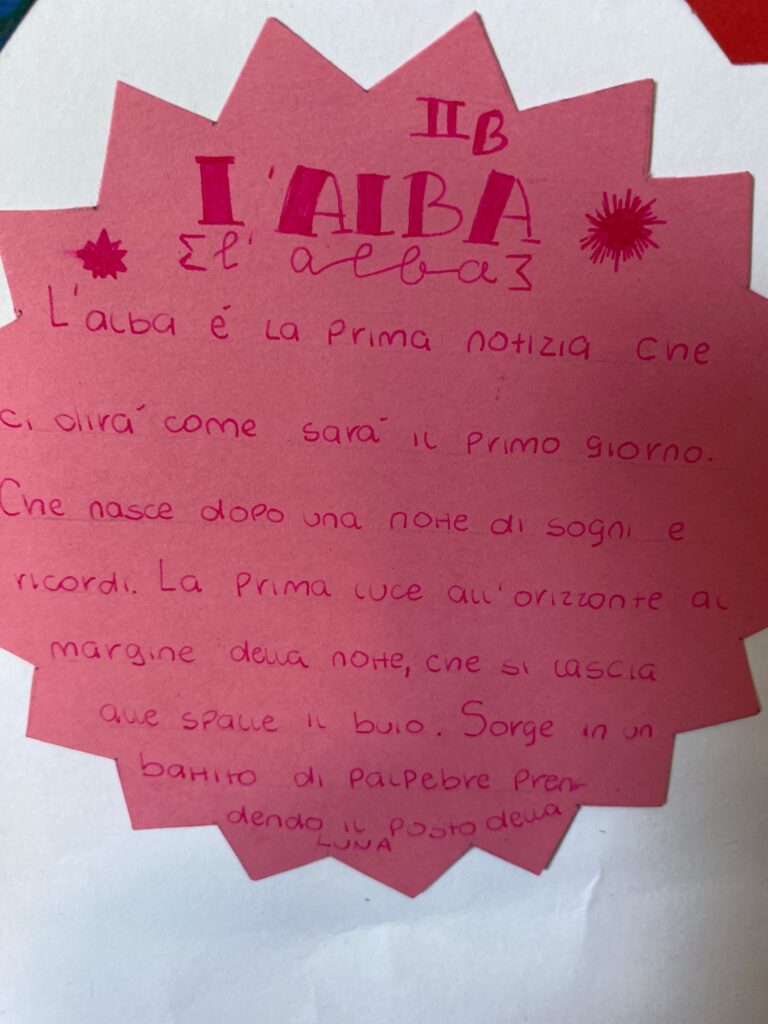 II B
L'ALBA
{l'alba}
L'alba é la prima notizia che
ci dirá come sará il primo giorno.
Che nasce dopo una notte di sogni e
ricordi. La prima luce all'orizzonte al
margine della notte, che si lascia
alle spalle il buio. Sorge in un
battito di palpebre pren-
dendo il posto della
LUNA